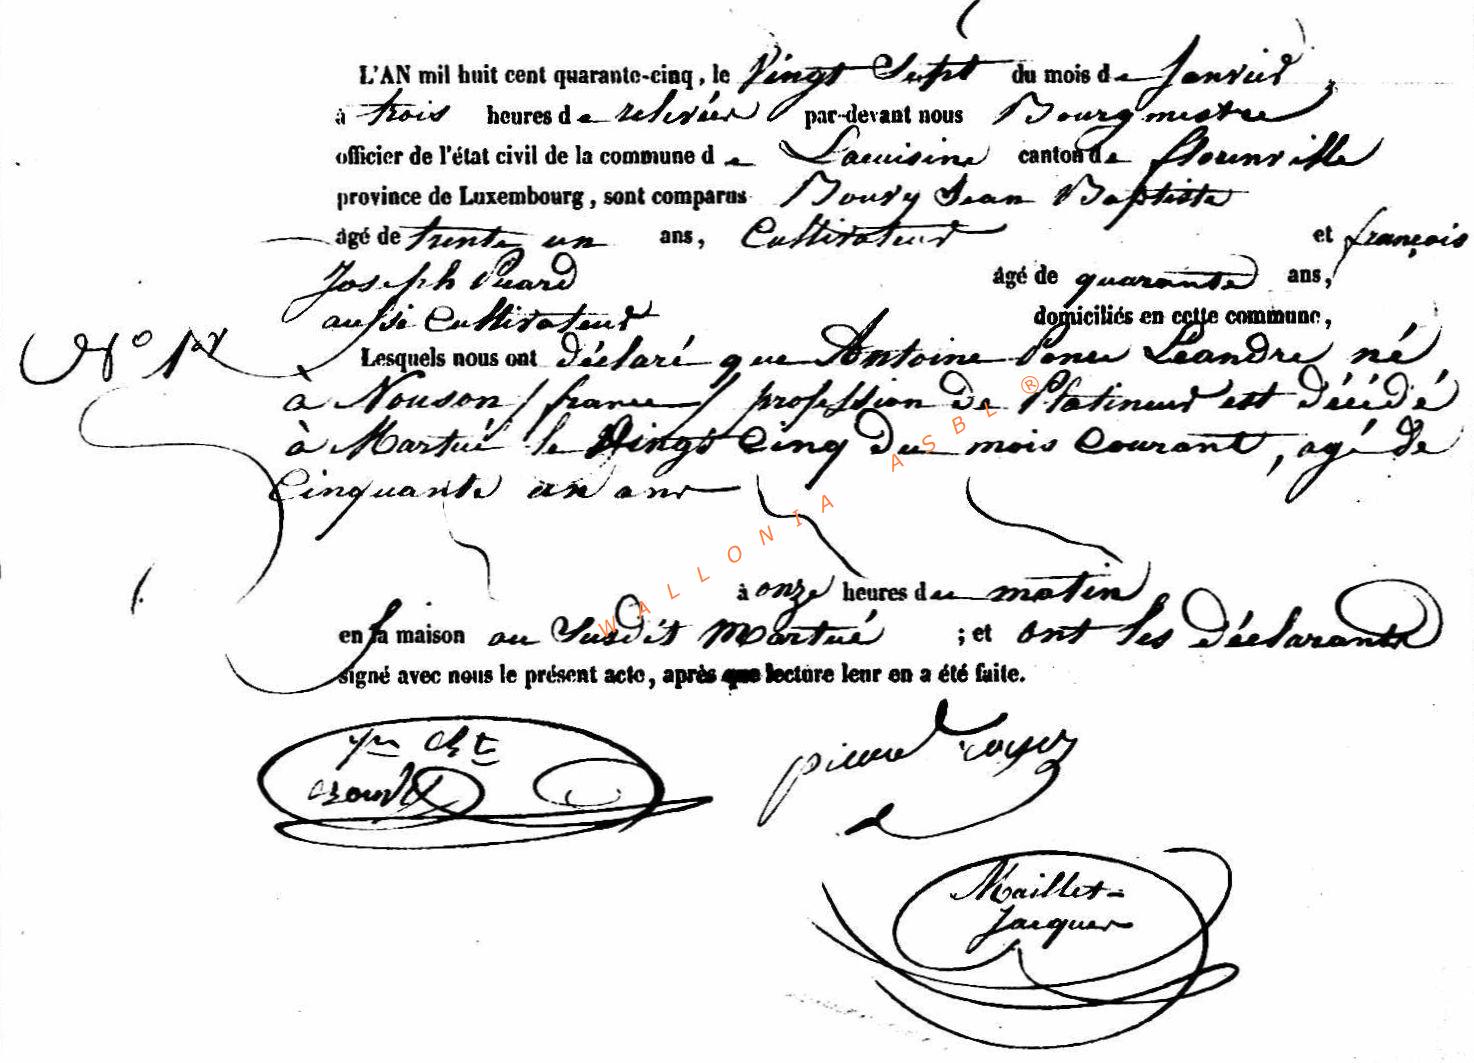 L'AN mil huit cent quarante-cinq, le Vingt Sept du mois de Janvier
à trois heures de relevée par-devant nous Bourgmestre
officier de l'état civil de la commune de Lacuisine canton de florenville
province de Luxembourg, sont comparus Boury Jean Baptiste
âgé de trente un ans, Cultivateur et françois
Joseph Puard âgé de quarante ans,
aussi Cultivateur domiciliés en cette commune,
N° 1er Lesquels nous ont déclaré que Antoine Ponce Léandre né
à Nouson / france / profession de Platineur est décédé
à Martué le Vingt Cinq du mois Courant, agé de
Cinquante un ans
à onze heures du matin
en sa maison au Susdit Martué ; et ont les déclarants
signé avec nous le présent acte, après que lecture leur en a été faite.
pierre
Maillet-
Jacques
WALLONIA ASBL ®